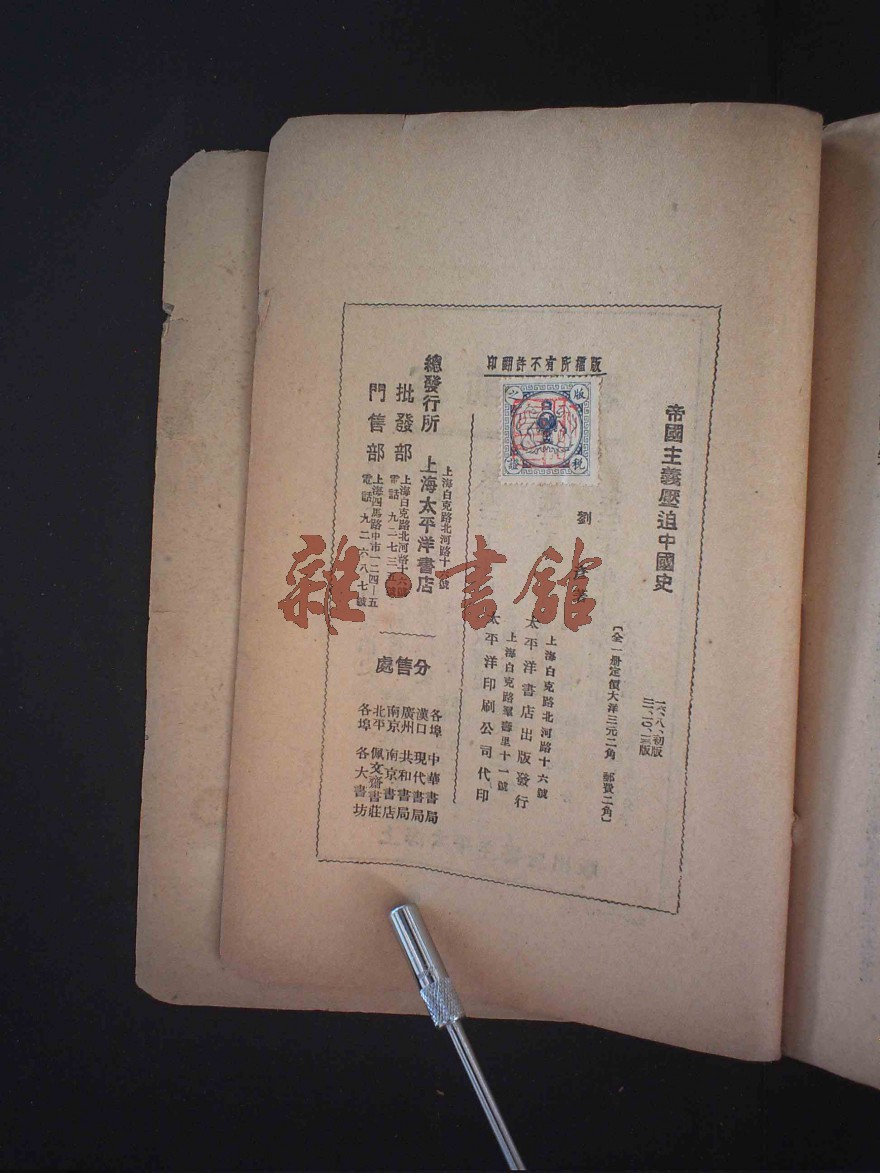 帝國主義壓迫中國史
一六、八、初版
三、二〇、三版
〔全一册定價大洋三元二角 郵費二角〕
劉
著
上海白克路北河路十六號
太平洋書店出版發行
上海白克路羣壽里十一號
太平洋印刷公司代印
版權所有不許翻印
版
之
稅
總發行所 上海太平洋書店
上海白克路北河路十六號
批發部
上海白克路北河路十六號
電話九二七三五號
門售部
上海四馬路中市一二四—五
電話九二六八七號
分售處
各埠 中華書局
漢口 現代書局
廣州 共和書局
南京 南京書店
北平 佩文齋書莊
各埠 各大書坊
雜·書館